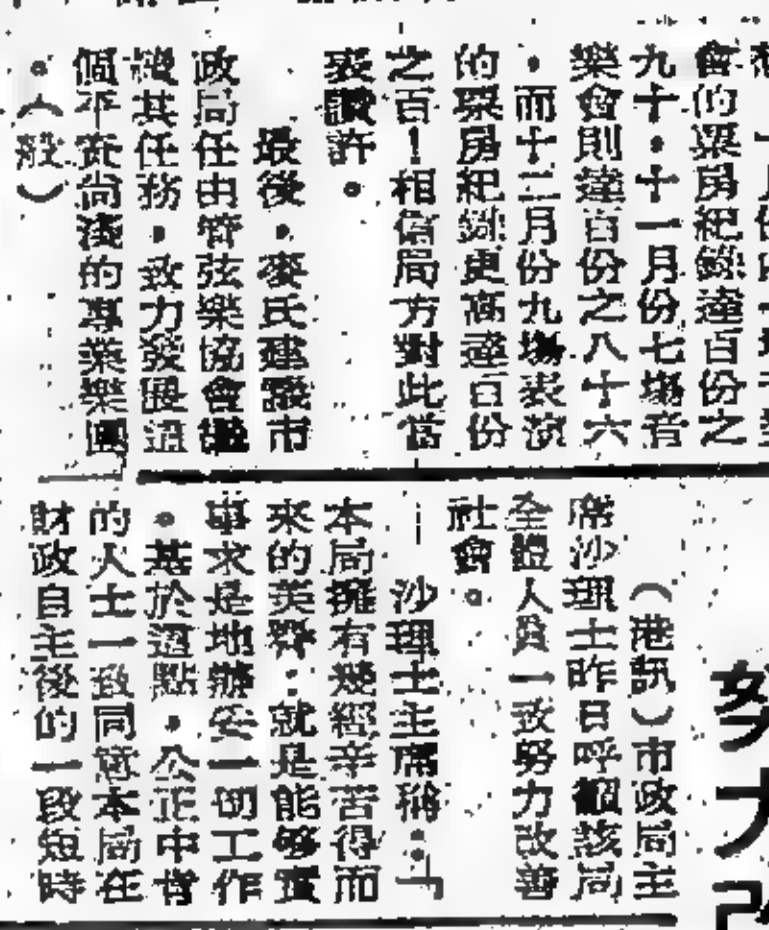 會的票房紀錄達百份之
九十。十一月份七場音
樂會則達百份之八十六
，而十二月份九場表演
的票房紀錄更高達百份
之百！相信局方對此當
表讚許。
最後，麥氏建議市
政局任由管弦樂協會繼
續其任務，致力發展這
個年資尚淺的專業樂團
。（毅）
努力改
（港訊）市政局主
席沙理士昨日呼籲該局
全體人員一致努力改善
社會。
沙理士主席稱：「
本局擁有幾經辛苦得而
來的美譽：就是能夠實
事求是地辦妥一切工作
。基於這點，公正中肯
的人士一致同意本局在
財政自主後的一段短時